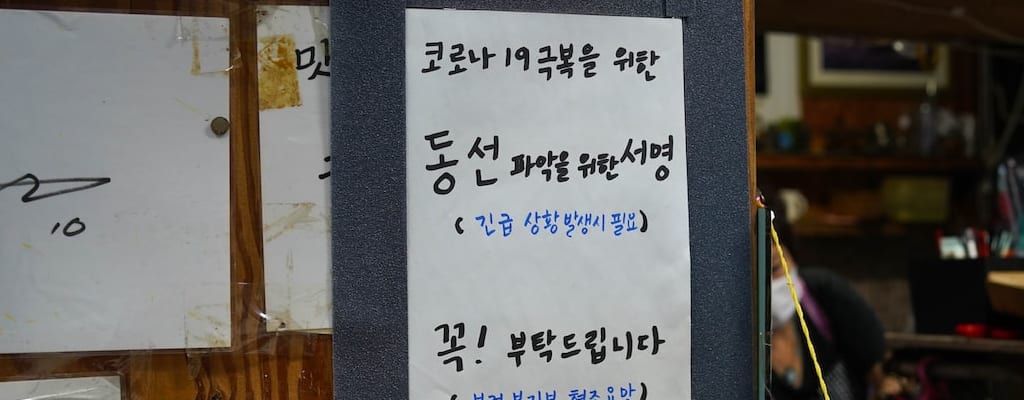 코로나19 극복을 위한
동선 파악을 위한 서명
( 긴급 상황 발생시 필요)
꼭! 부탁드립니다
맛
10